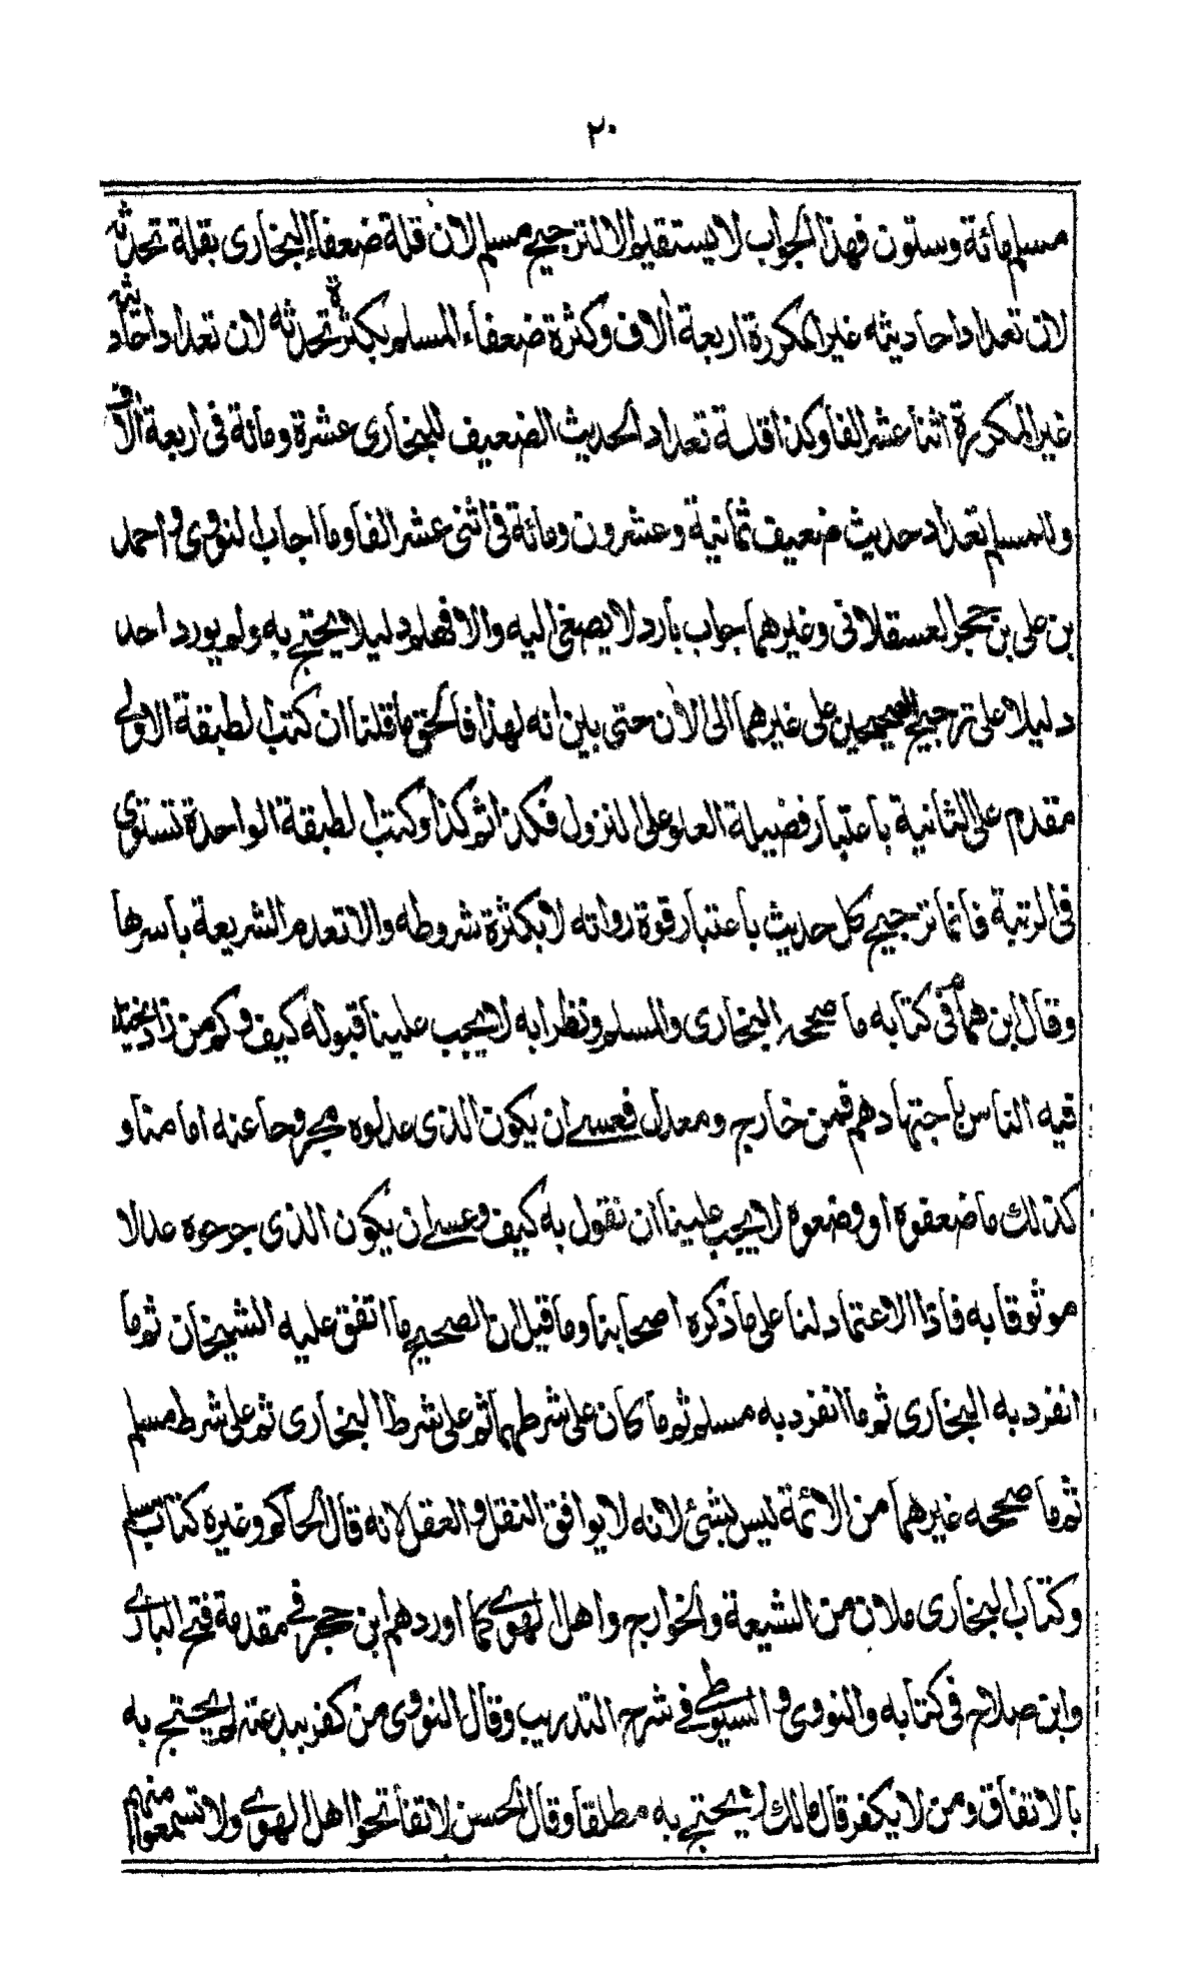 ٢٠
مسلم مائة وستون فهذا الجواب لا يستقيم الا لترجيح مسلم لان قلة ضعفاء البخارى بقلة تحدثه
لان تعداد احاديثه غير المكررة اربعة الاف وكثرة ضعفاء المسلم بكثرة تحدثه لان تعداد احاديثه
غير المكررة اثنا عشر الفا وكذا قلة تعداد الحديث الضعيف للبخارى عشرة ومائة فى اربعة الاف
ولمسلم تعداد حديث ضعيف ثمانية وعشرون ومائة فى اثنى عشر الفا وما اجاب النووى واحمد
بن على بن حجر العسقلانى وغيرهما جواب بارد لا يصغى اليه والا فهلم دليلا يحتج به ولم يورد احد
دليلا على ترجيح الصحيحين على غيرهما الى الان حتى يبين انه لهذا فالحق ما قلنا ان كتب الطبقة الاولى
مقدم على الثانية باعتبار فضيلة العلو على النزول فكذا ثم كذا وكتب الطبقة الواحدة تستوى
فى الرتبة فانما ترجيح كل حديث باعتبار قوة رواته لا بكثرة شروطه والا تعدم الشريعة باسرها
وقال ابن همام فى كتابه ما صححه البخارى والمسلم ونظرا به لا يجب علينا قبوله كيف وكم من راو يختلف
فيه الناس باجتهادهم فمن خارج ومعدل فعسى ان يكون الذى عدلوه مجروحا عند امامنا و
كذلك ما ضعفوه او وضعوه لا يجب علينا ان نقول به كيف وعسى ان يكون الذى جرحوه عدلا
موثوقا به فاذا الاعتماد لنا على ما ذكره اصحابنا وما قيل ان الصحيح ما اتفق عليه الشيخان ثم ما
انفرد به البخارى ثم ما انفرد به مسلم ثم ما كان على شرطهما ثم على شرط البخارى ثم على شرط مسلم
ثم ما صححه غيرهما من الائمة ليس بشئ لانه لا يوافق النقل والعقل لانه قال الحاكم وغيره كتاب مسلم
وكتاب البخارى ملان من الشيعة والخوارج واهل الهوى كما اوردهم ابن حجر فى مقدمة فتح البارى
وابن صلاح فى كتابه والنووى والسيوطى فى شرح التدريب وقال النووى من كفر ببدعته لم يحتج به
بالاتفاق ومن لا يكفر قال مالك لا يحتج به مطلقا وقال الحسن لا تفاتحوا اهل الهوى ولا تسمعوا منهم